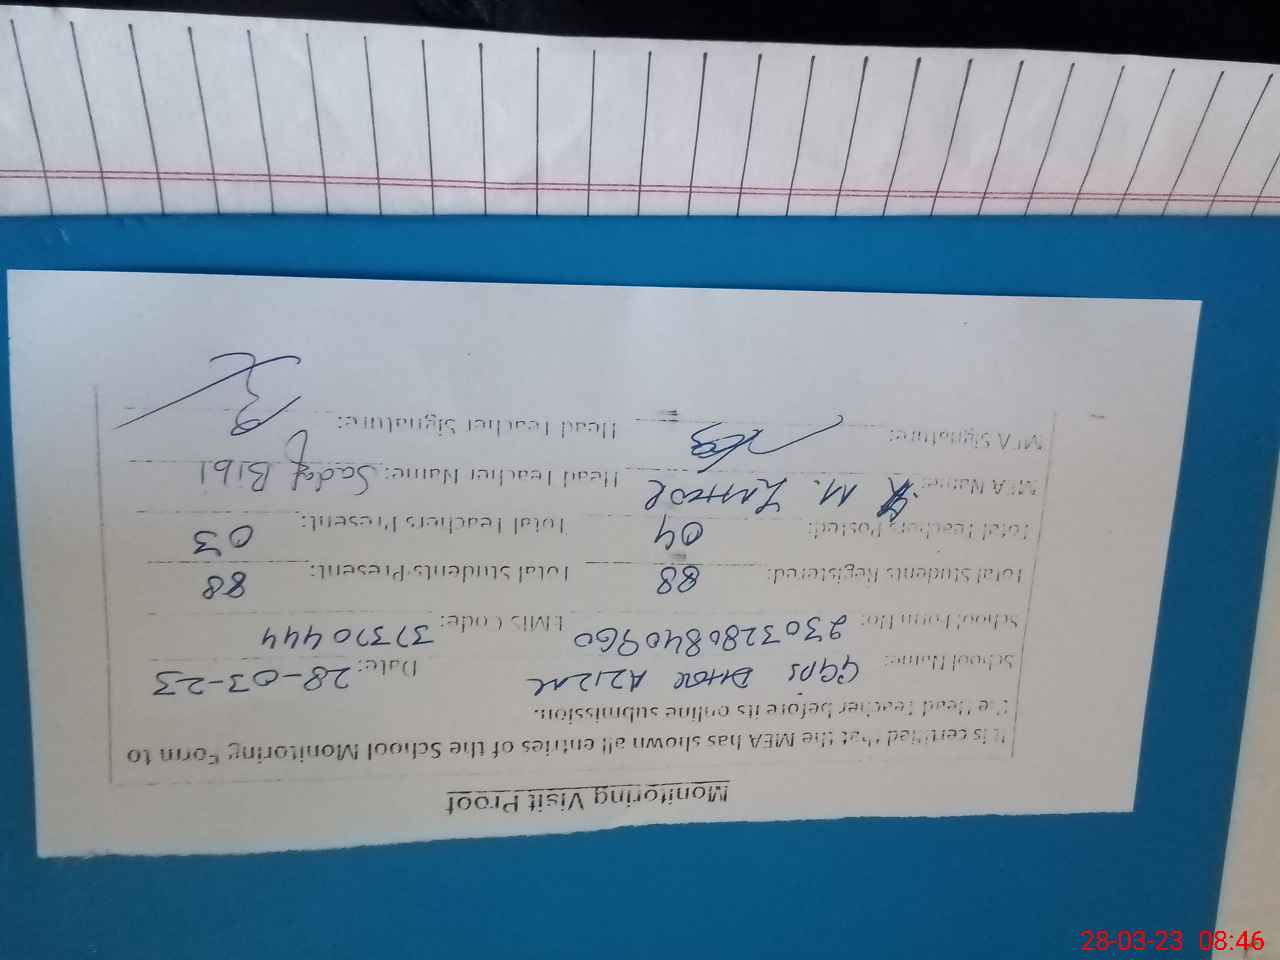 Monitoring Visit Proof
It is certified that the MEA has shown all entries of the School Monitoring Form to
the Head Teacher before its online submission.
School Name: GGPS DHOK Date: 28-03-23
School Form No: 230328084096o EMIS Code: 37370444
Total Students Registered: 88 Total Students Present: 88
Total Teachers Posted: 04 Total Teachers Present: 03
MEA Name: M. Head Teacher Name: Sadaf Bibi
MEA Signature: Head Teacher Signature:
28-03-23 08:46